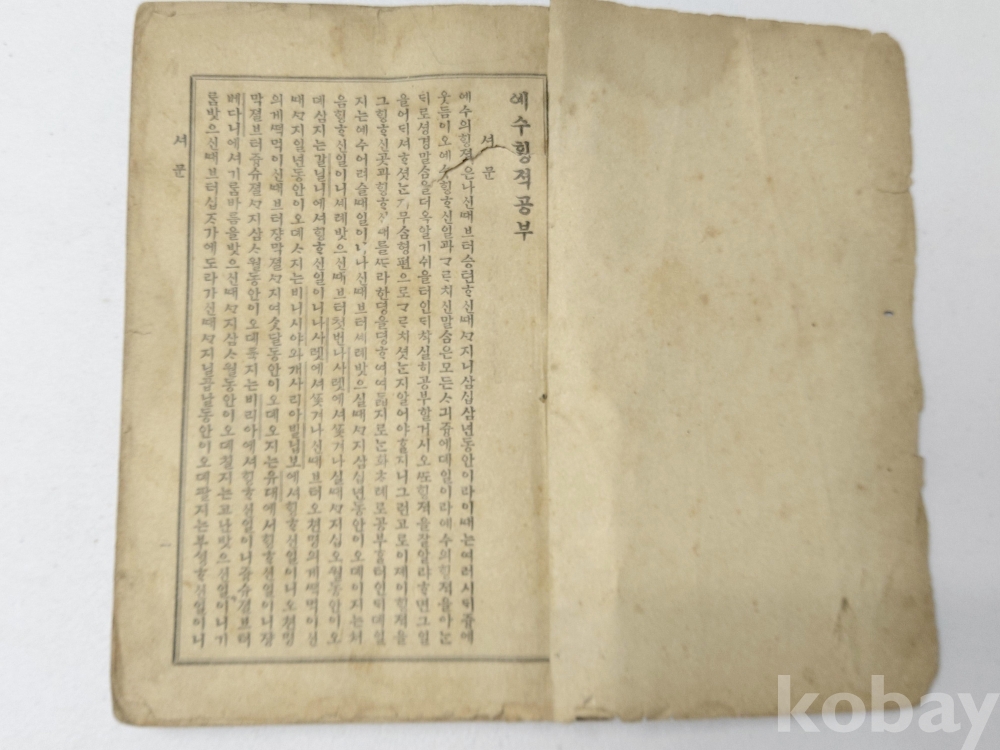 예수힝젹공부
셔문
예수의힝젹은나신때브터승텬ᄒᆞ신때ᄭᆞ지니삼십삼년동안이라이때는여러시ᄃᆡ즁에
웃듬이오예수힝ᄒᆞ신일과ᄀᆞᄅᆞ치신말ᄉᆞᆷ은모든ᄉᆞ긔즁에뎨일이라예수의힝젹을아ᄂᆞᆫ
ᄃᆡ로셩경말ᄉᆞᆷ을더옥알기쉬올터인ᄃᆡ착실히공부할거시오ᄯᅩ힝젹을잘알랴ᄒᆞ면그일
을어ᄃᆡ셔ᄒᆞ셧ᄂᆞᆫ지무ᄉᆞᆷ형편으로ᄀᆞᄅᆞ치셧ᄂᆞᆫ지알어야ᄒᆞᆯ지니그런고로이제이힝젹을
그힝ᄒᆞ신곳과힝ᄒᆞ신때를ᄯᅡ라한뎡을뎡ᄒᆞ여여ᄃᆞᆲ지로ᄂᆞᆫ화ᄎᆞ례로공부ᄒᆞᆯ터인ᄃᆡ뎨일
지는예수어려슬때일이니나신때브터셰례밧으실때ᄭᆞ지삼십년동안이오뎨이지는처
음힝ᄒᆞ신일이니셰례밧으신때브터첫번나사렛에셔ᄶᅩᆺ겨나실때ᄭᆞ지십오월동안이오
뎨삼지는갈닐니에셔힝ᄒᆞ신일이니나사렛에셔ᄶᅩᆺ겨나신때브터오쳔명의게떡먹이신
때ᄭᆞ지일년동안이오뎨ᄉᆞ지는비니시아와개사리아빌닙보에셔힝ᄒᆞ신일이니오쳔명
의게떡먹이신때브터쟝막졀ᄭᆞ지여ᄉᆞᆺ달동안이오뎨오지는유대에셔힝ᄒᆞ신일이니쟝
막졀브터즁슈졀ᄭᆞ지삼ᄉᆞ월동안이오뎨륙지는비리아에셔힝ᄒᆞ신일이니즁슈졀브터
베다니에셔기름바름을밧으신때ᄭᆞ지삼ᄉᆞ월동안이오뎨칠지는고난밧으신일이니기
름밧으신때브터십ᄌᆞ가에도라가신때ᄭᆞ지닐곱날동안이오뎨팔지는부셩ᄒᆞ신일이니
셔문
kobay